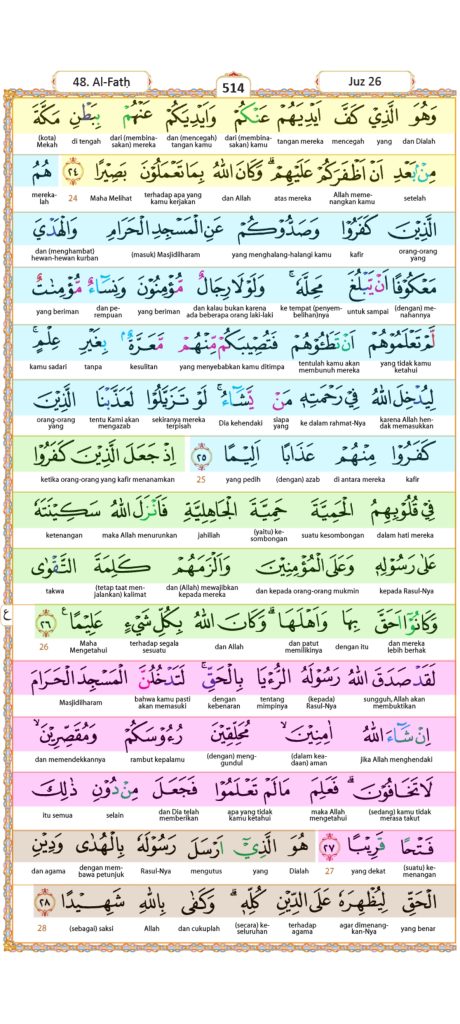 48. Al-Fatḥ
514
Juz 26
وَهُوَ الَّذِيْ كَفَّ اَيْدِيَهُمْ عَنْكُمْ وَاَيْدِيَكُمْ عَنْهُمْ بِبَطْنِ مَكَّةَ
dan Dialah yang mencegah tangan mereka dari (membinasakan) kamu dan (mencegah) tangan kamu dari (membinasakan) mereka di tengah (kota) Mekah
مِنْۢ بَعْدِ اَنْ اَظْفَرَكُمْ عَلَيْهِمْ ۗ وَكَانَ اللّٰهُ بِمَا تَعْمَلُوْنَ بَصِيْرًا ٢٤ هُمُ
setelah Allah memenangkan kamu atas mereka dan Allah terhadap apa yang kamu kerjakan Maha Melihat 24 merekalah
الَّذِيْنَ كَفَرُوْا وَصَدُّوْكُمْ عَنِ الْمَسْجِدِ الْحَرَامِ وَالْهَدْيَ
orang-orang yang kafir yang menghalang-halangi kamu (masuk) Masjidilharam dan (menghambat) hewan-hewan kurban
مَعْكُوْفًا اَنْ يَّبْلُغَ مَحِلَّهٗ ۚ وَلَوْلَا رِجَالٌ مُّؤْمِنُوْنَ وَنِسَاۤءٌ مُّؤْمِنٰتٌ
(dengan) menahannya untuk sampai ke tempat (penyembelihan)nya dan kalau bukan karena ada beberapa orang laki-laki yang beriman dan perempuan yang beriman
لَّمْ تَعْلَمُوْهُمْ اَنْ تَطَـُٔوْهُمْ فَتُصِيْبَكُمْ مِّنْهُمْ مَّعَرَّةٌ ۢ بِغَيْرِ عِلْمٍ ۚ
yang tidak kamu ketahui tentulah kamu akan membunuh mereka yang menyebabkan kamu ditimpa kesulitan tanpa kamu sadari
لِيُدْخِلَ اللّٰهُ فِيْ رَحْمَتِهٖ مَنْ يَّشَاۤءُ ۚ لَوْ تَزَيَّلُوْا لَعَذَّبْنَا الَّذِيْنَ
karena Allah hendak memasukkan ke dalam rahmat-Nya siapa yang Dia kehendaki sekiranya mereka terpisah tentu Kami akan mengazab orang-orang yang
كَفَرُوْا مِنْهُمْ عَذَابًا اَلِيْمًا ٢٥ اِذْ جَعَلَ الَّذِيْنَ كَفَرُوْا
kafir di antara mereka (dengan) azab yang pedih 25 ketika orang-orang yang kafir menanamkan
فِيْ قُلُوْبِهِمُ الْحَمِيَّةَ حَمِيَّةَ الْجَاهِلِيَّةِ فَاَنْزَلَ اللّٰهُ سَكِيْنَتَهٗ
dalam hati mereka suatu kesombongan (yaitu) kesombongan jahiliah maka Allah menurunkan ketenangan
عَلٰى رَسُوْلِهٖ وَعَلَى الْمُؤْمِنِيْنَ وَاَلْزَمَهُمْ كَلِمَةَ التَّقْوٰى
kepada Rasul-Nya dan kepada orang-orang mukmin dan (Allah) mewajibkan kepada mereka (tetap taat menjalankan) kalimat takwa
وَكَانُوْٓا اَحَقَّ بِهَا وَاَهْلَهَا ۗ وَكَانَ اللّٰهُ بِكُلِّ شَيْءٍ عَلِيْمًا ࣖ ٢٦
ع
dan mereka lebih berhak dengan itu dan patut memilikinya dan Allah terhadap segala sesuatu Maha Mengetahui 26
لَقَدْ صَدَقَ اللّٰهُ رَسُوْلَهُ الرُّءْيَا بِالْحَقِّ ۚ لَتَدْخُلُنَّ الْمَسْجِدَ الْحَرَامَ
sungguh, Allah akan membuktikan (kepada) Rasul-Nya tentang mimpinya dengan kebenaran bahwa kamu pasti akan memasuki Masjidilharam
اِنْ شَاۤءَ اللّٰهُ اٰمِنِيْنَ ۙ مُحَلِّقِيْنَ رُءُوْسَكُمْ وَمُقَصِّرِيْنَ ۙ
jika Allah menghendaki (dalam keadaan) aman (dengan) menggundul rambut kepalamu dan memendekkannya
لَا تَخَافُوْنَ ۗ فَعَلِمَ مَا لَمْ تَعْلَمُوْا فَجَعَلَ مِنْ دُوْنِ ذٰلِكَ
(sedang) kamu tidak merasa takut maka Allah mengetahui apa yang tidak kamu ketahui dan Dia telah memberikan selain itu semua
فَتْحًا قَرِيْبًا ٢٧ هُوَ الَّذِيْٓ اَرْسَلَ رَسُوْلَهٗ بِالْهُدٰى وَدِيْنِ
(suatu) kemenangan yang dekat 27 Dialah yang mengutus Rasul-Nya dengan membawa petunjuk dan agama
الْحَقِّ لِيُظْهِرَهٗ عَلَى الدِّيْنِ كُلِّهٖ ۗ وَكَفٰى بِاللّٰهِ شَهِيْدًا ٢٨
yang benar agar dimenangkan-Nya terhadap agama (secara) keseluruhan dan cukuplah Allah (sebagai) saksi 28